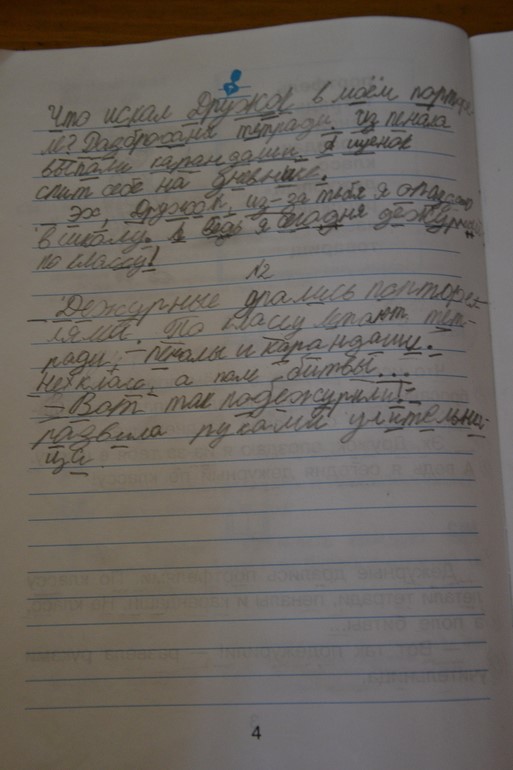 Что искал Дружок в моём портфе
ле? Разбросаны тетради, из пенала
выпали карандаши. А щенок
спит себе на дневнике.
Эх, Дружок, из-за тебя я опаздаю
в школу. А ведь я сегодня дежурный
по классу!
12
Дежурные дрались портфе-
лями. По классу летают тет-
ради, пеналы и карандаши.
не класс, а поле битвы...
- Вот так подежурили! -
развела руками учительни-
ца.
4